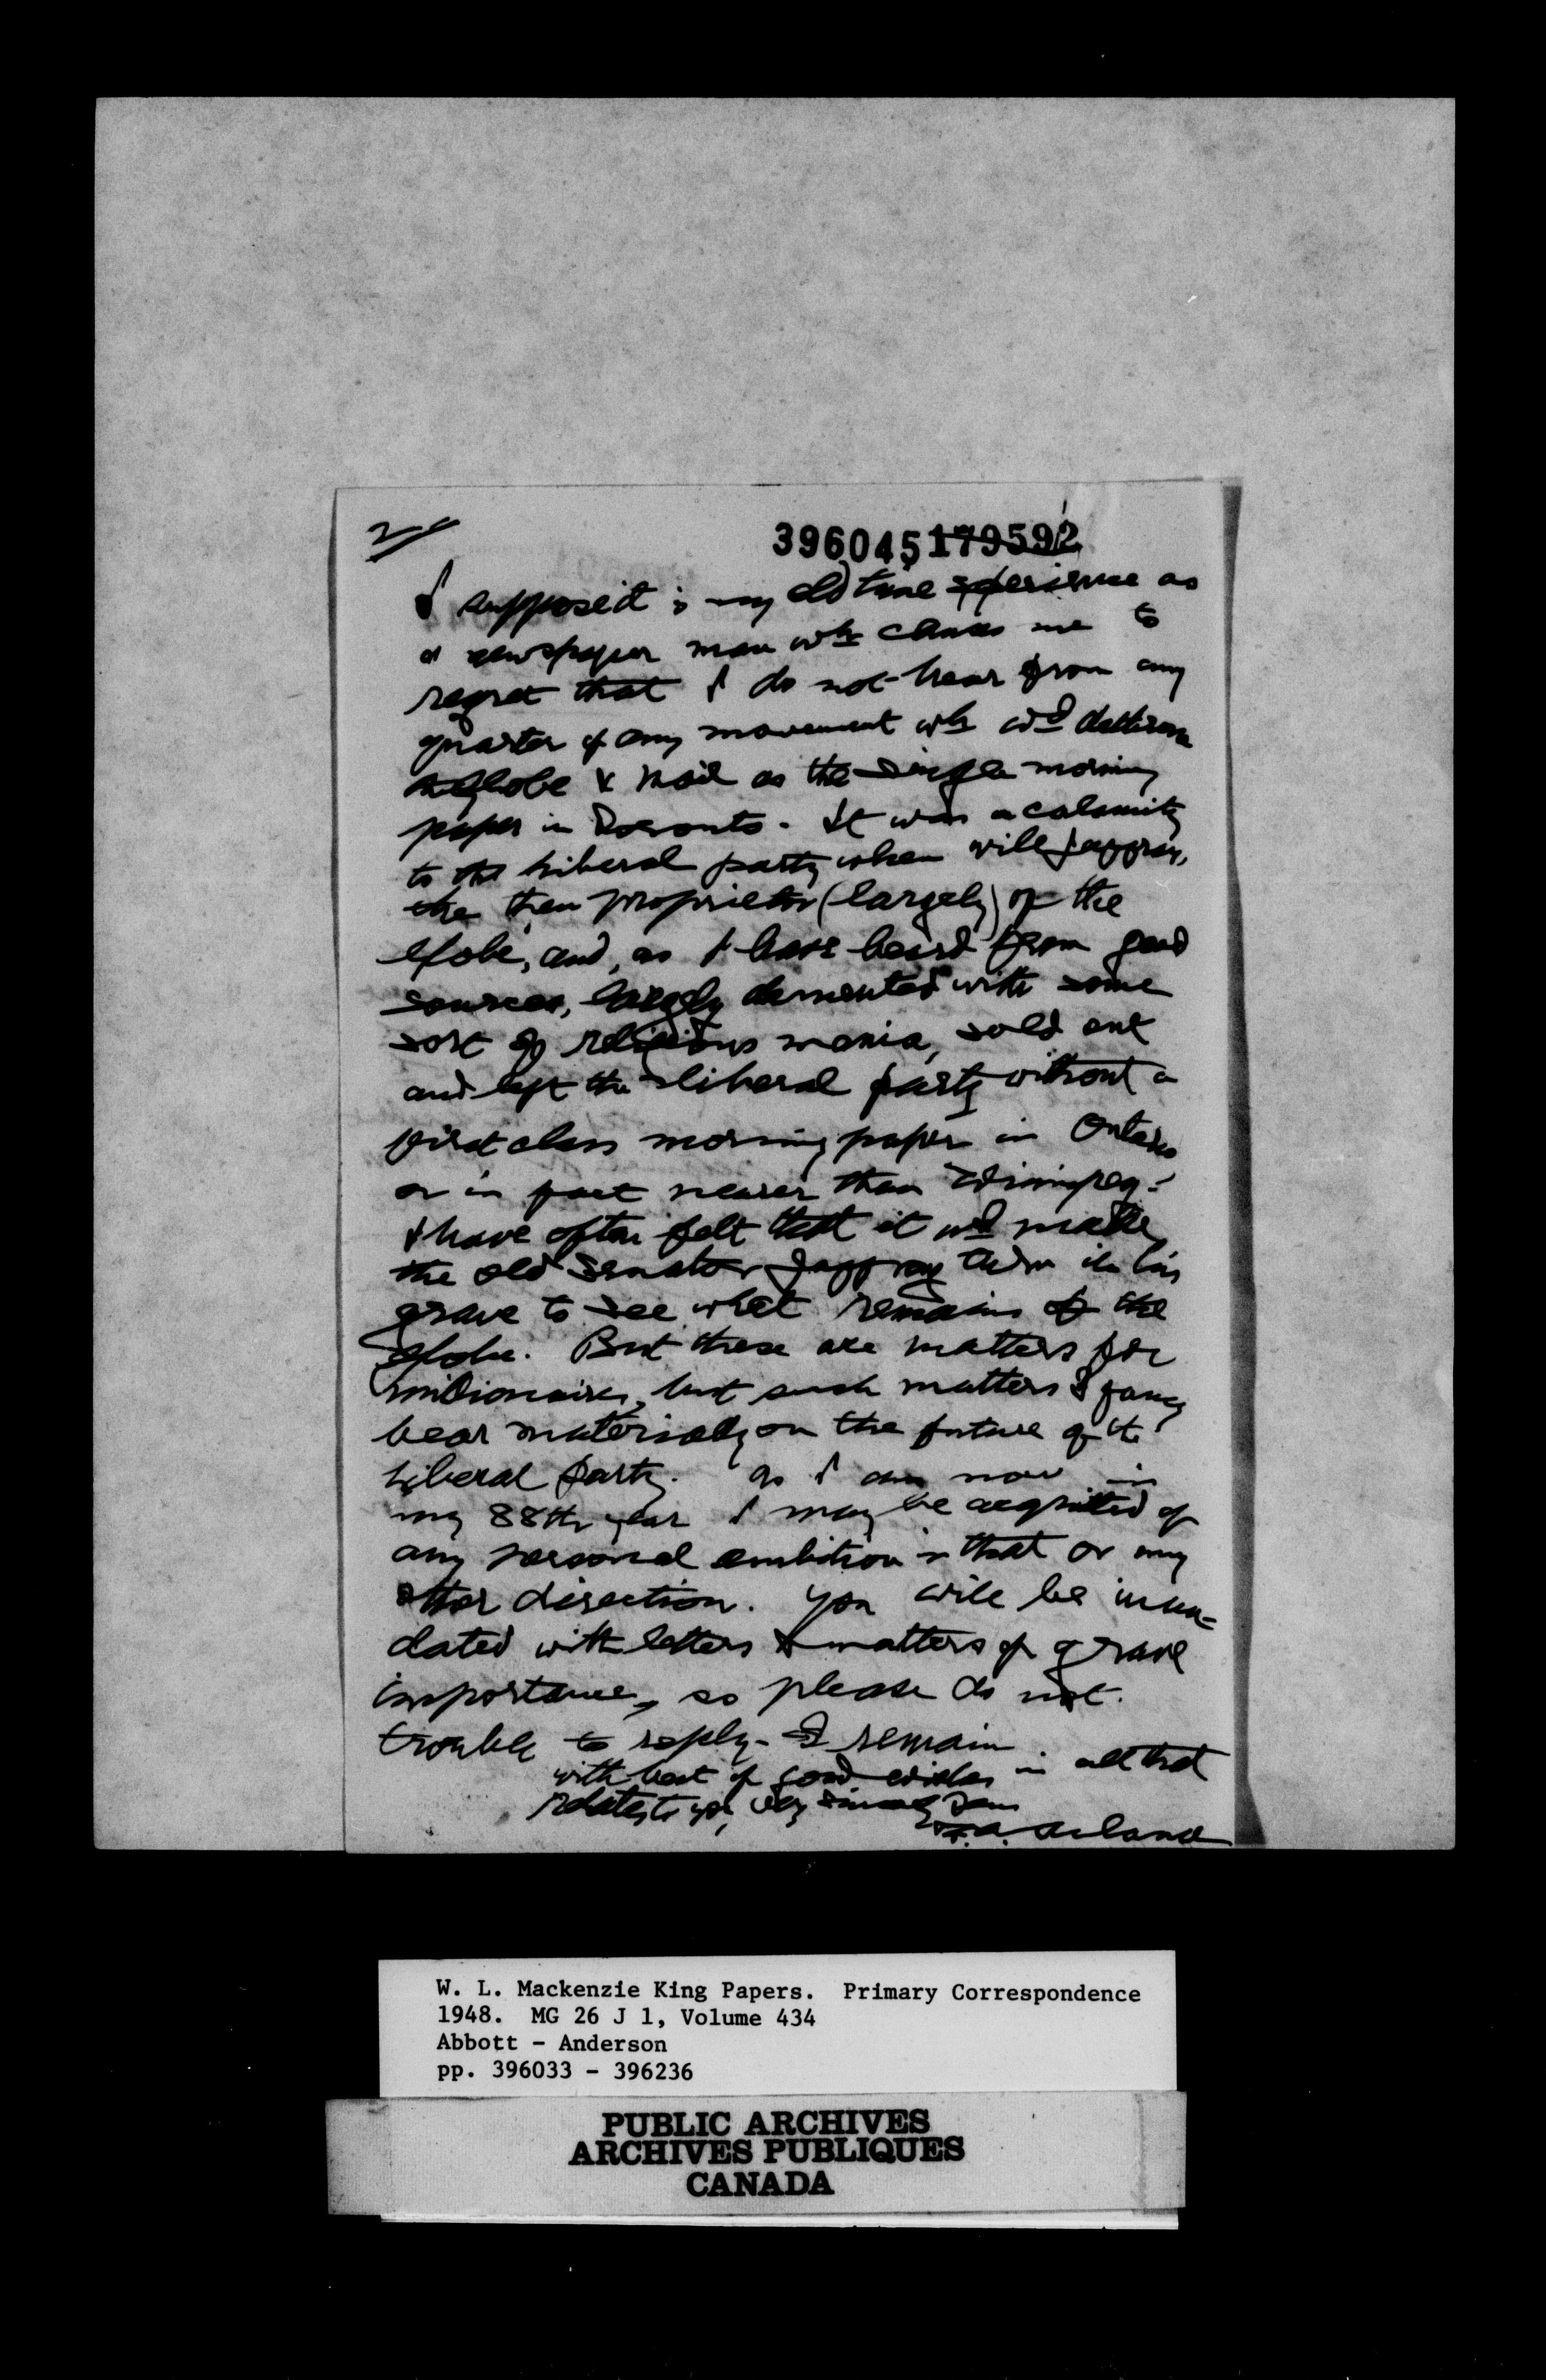 2
396045 179592
I suppose it is my old time experience as
a newspaper man wh causes me to
regret that I do not hear from any
quarter of any movement wh wd dethrone
the Globe & Mail as the single morning
paper in Toronto. It was a calamity
to the Liberal party when Will Jaffray,
the then proprietor (largely) of the
Globe, and, as I have heard from good
sources, largely demented with some
sort of religious mania, sold out
and left the Liberal party without a
first class morning paper in Ontario
or in fact nearer than Winnipeg.
I have often felt that it wd make
the old Senator Jaffray turn in his
grave to see what remains of the
Globe. But these are matters for
millionaires, but such matters I fancy
bear materially on the future of the
Liberal party. As I am now in
my 88th year I may be acquitted of
any personal ambition in that or any
other direction. You will be inun-
dated with letters & matters of grave
importance, so please do not
trouble to reply - I remain
with best of good wishes in all that
relates to you, very sincerely yours
W.A. Acland
W. L. Mackenzie King Papers. Primary Correspondence
1948. MG 26 J 1, Volume 434
Abbott - Anderson
pp. 396033 - 396236
PUBLIC ARCHIVES
ARCHIVES PUBLIQUES
CANADA